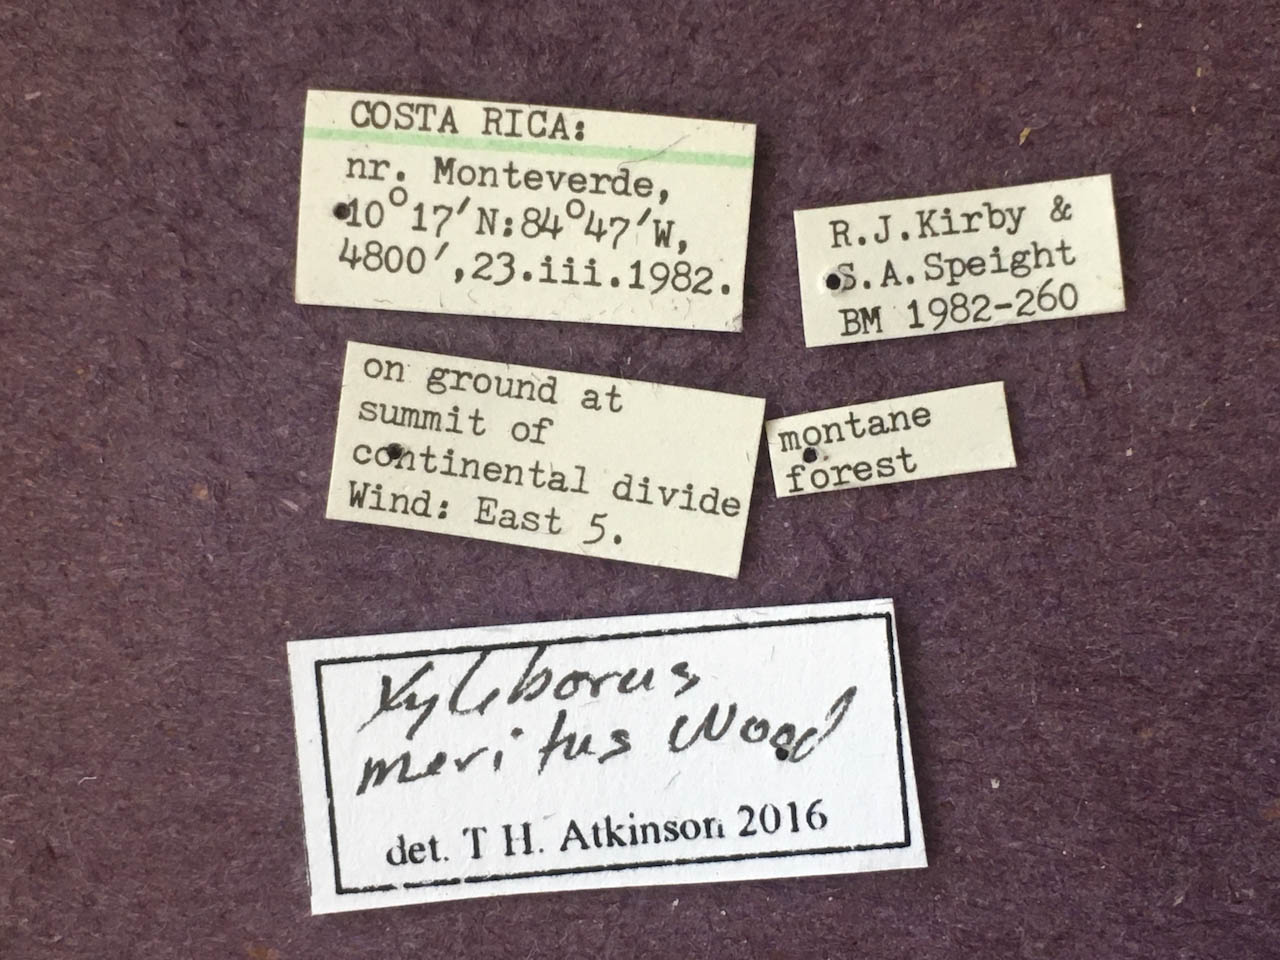 COSTA RICA:
nr. Monteverde,
10°17′N:84°47′W,
4800′,23.iii.1982.
R.J.Kirby &
S.A.Speight
BM 1982-260
on ground at
summit of
continental divide
Wind: East 5.
montane
forest
Xyleborus
meritus Wood
det. T H. Atkinson 2016